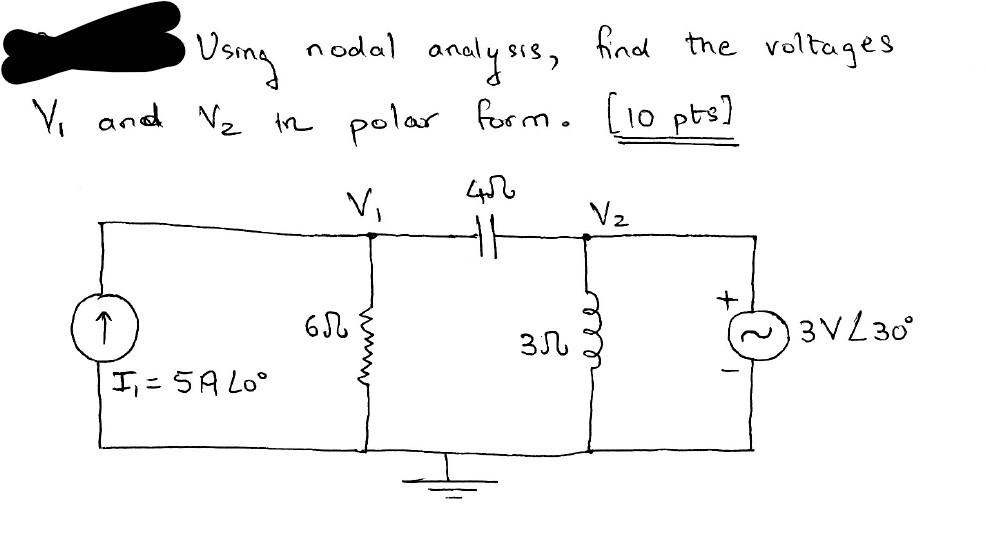 Using nodal analysis, find the voltages
V₁ and V₂ in polar form. [10 pts]
V₁ 4Ω V₂
6Ω 3Ω + 3V∠30°
-
I₁ = 5A∠0°